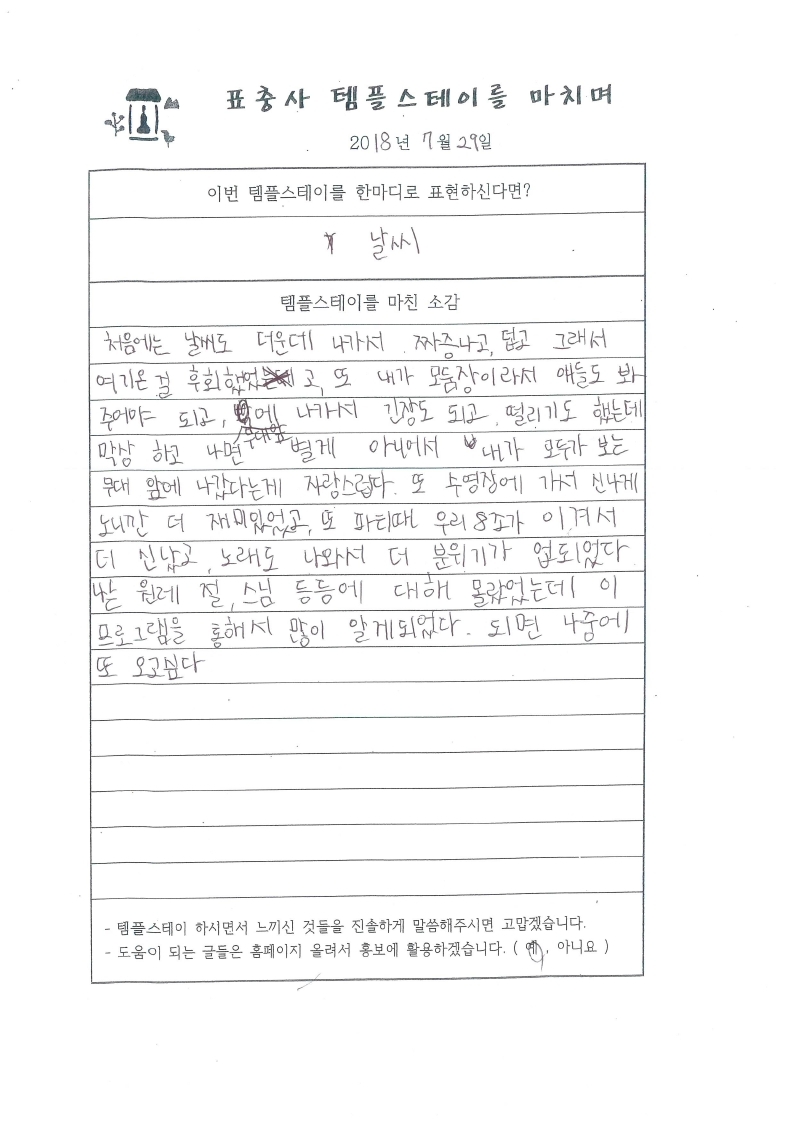 표충사 템플스테이를 마치며
2018년 7월 29일
이번 템플스테이를 한마디로 표현하신다면?
날씨
템플스테이를 마친 소감
처음에는 날씨도 더운데 나가서 짜증나고, 덥고 그래서
여기온 걸 후회했었고, 또 내가 모둠장이라서 애들도 봐
주어야 되고, 무대앞에 나가서 긴장도 되고, 떨리기도 했는데
막상 하고 나면 별게 아니에서 내가 모두가 보는
무대 앞에 나갔다는게 자랑스럽다. 또 수영장에 가서 신나게
노니깐 더 재미있었고, 또 파티때 우리 8조가 이겨서
더 신났고, 노래도 나와서 더 분위기가 업되었다
난 원레 절, 스님 등등에 대해 몰랐었는데 이
프로그램을 통해서 많이 알게되었다. 되면 나중에
또 오고싶다
- 템플스테이 하시면서 느끼신 것들을 진솔하게 말씀해주시면 고맙겠습니다.
- 도움이 되는 글들은 홈페이지 올려서 홍보에 활용하겠습니다. ( 예 , 아니요 )